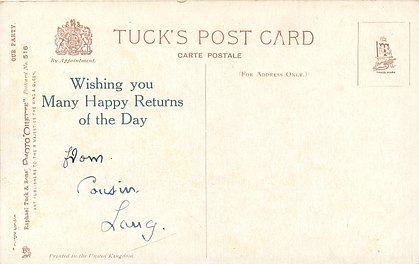 TUCK'S POST CARD
CARTE POSTALE
By Appointment.
(FOR ADDRESS ONLY.)
Wishing you
Many Happy Returns
of the Day
from
Cousin
Printed in the United Kingdom
OUR PARTY.
Raphael Tuck & Sons' "PHOTO OILETTE" Postcard No. 516
ART PUBLISHERS TO THEIR MAJESTIES THE KING & QUEEN.
TRADE MARK